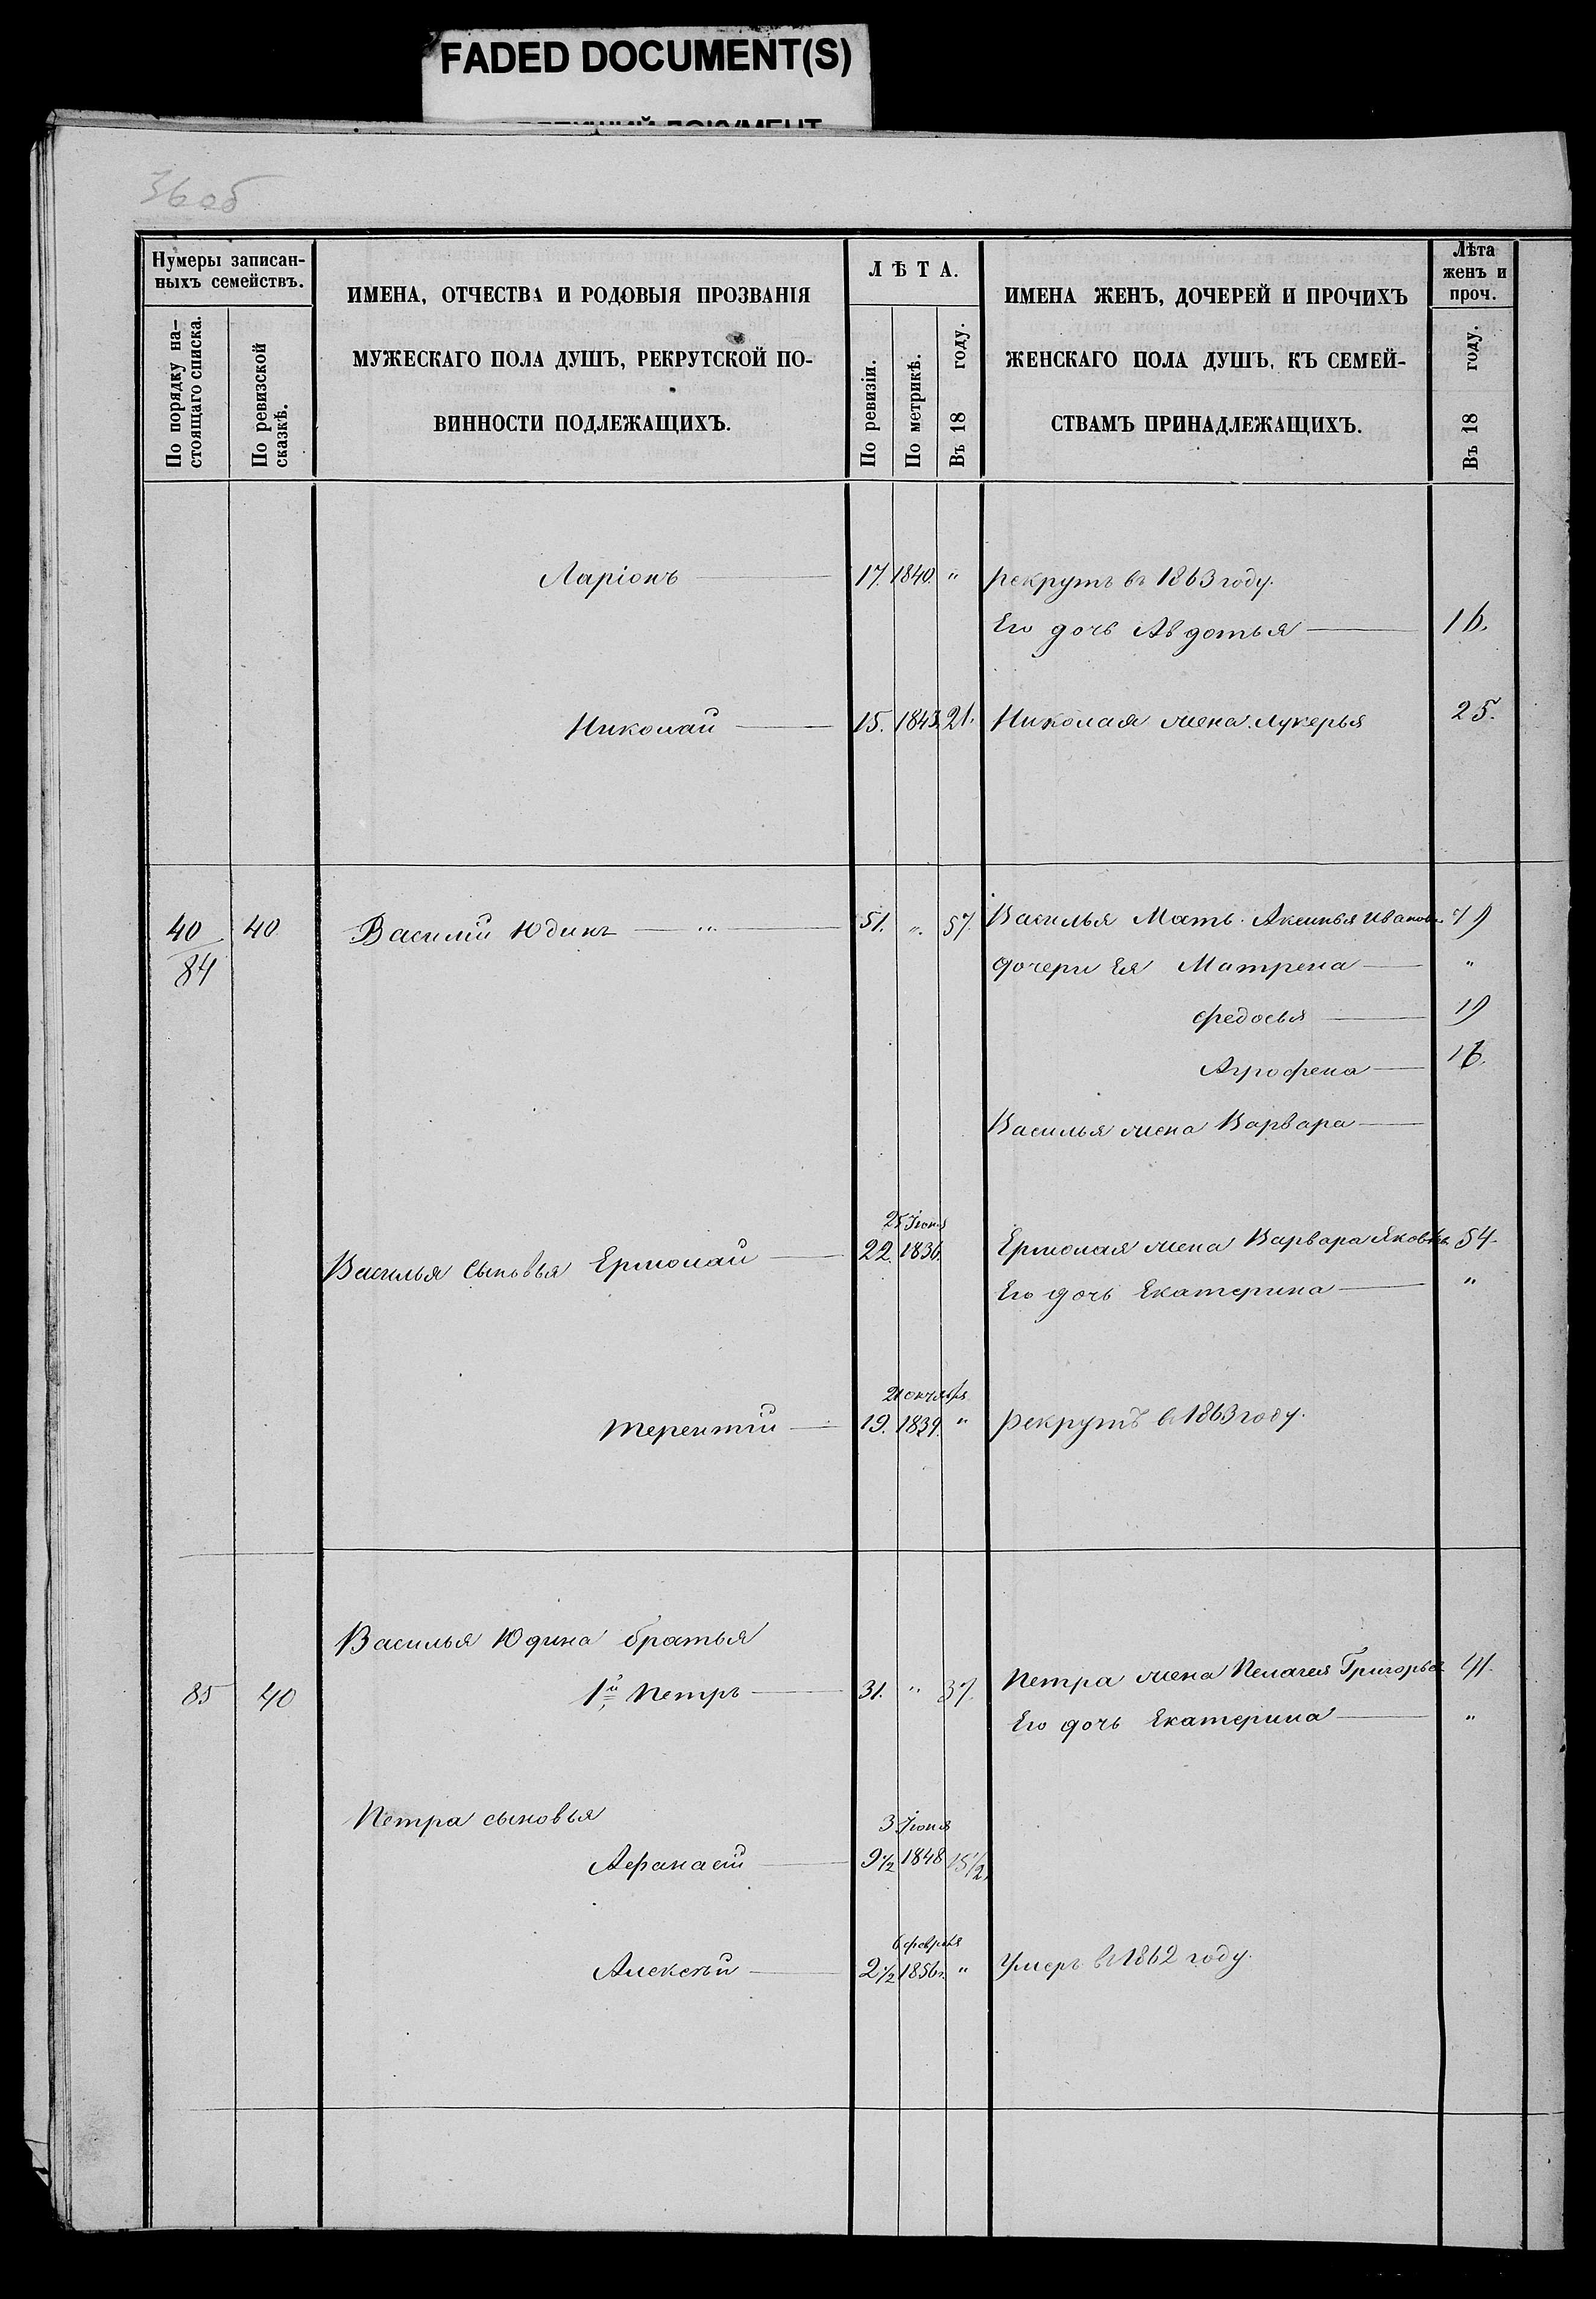 FADED DOCUMENT(S)
36 об
Нумеры записан-
ныхъ семействъ.
По порядку на-
стоящаго списка.
По ревизской
сказкѣ.
ИМЕНА, ОТЧЕСТВА И РОДОВЫЯ ПРОЗВАНІЯ
МУЖЕСКАГО ПОЛА ДУШЪ, РЕКРУТСКОЙ ПО-
ВИННОСТИ ПОДЛЕЖАЩИХЪ.
ЛѢТА.
По ревизіи.
По метрикѣ.
Въ 18 году.
ИМЕНА ЖЕНЪ, ДОЧЕРЕЙ И ПРОЧИХЪ
ЖЕНСКАГО ПОЛА ДУШЪ, КЪ СЕМЕЙ-
СТВАМЪ ПРИНАДЛЕЖАЩИХЪ.
Лѣта
женъ и
проч.
Въ 18 году.
Ларіонъ 17. 1840. " рекрутъ въ 1863 году.
Его дочь Авдотья 16.
Николай 15. 1843. 21. Николая жена Лукерья 25.
40 40 Василій Юдинъ " 51. " 57. Василья Мать Аксинья Иванов. 79
84 дочери Ея Матрена "
Федосья 19
Агрофена 16.
Василья жена Варвара
25 Іюня
Василья сыновья Ермолай 22. 1836. Ермолая жена Варвара Яковл. 54
Его дочь Екатерина "
21 октября
Терентій 19. 1839. " рекрутъ въ 1863 году.
Василья Юдина братья
85 40 1й Петръ 31. " 37. Петра жена Пелагея Григорьев 41.
Его дочь Екатерина "
Петра сыновья 3 Іюня
Афанасій 9 1/2 1848 15 1/2.
6 февраля
Алексѣй 2 1/2 1856. " Умеръ въ 1862 году.